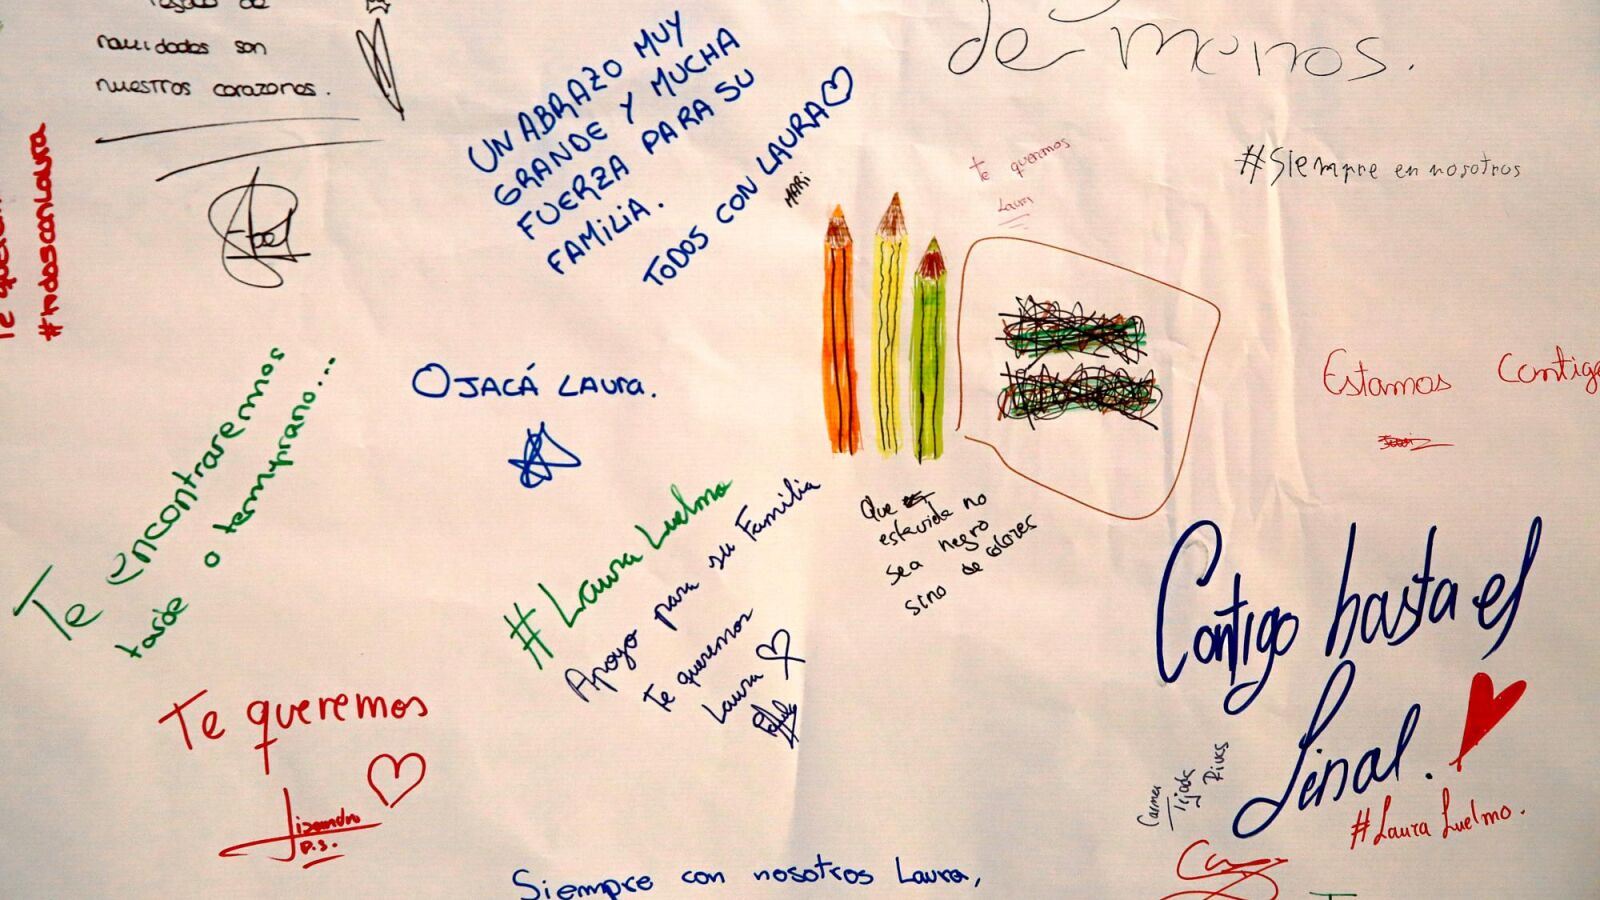 de
navidades son
nuestros corazones.
#todosconLaura
UN ABRAZO MUY
GRANDE Y MUCHA
FUERZA PARA SU
FAMILIA.
TODOS CON LAURA
MARI
de menos.
Te queremos
Laura
#Siempre en nosotros
Te encontraremos
tarde o temprano...
OJACÁ LAURA.
Estamos Contigo
#Laura Luelmo
Apoyo para su Familia
Te queremos
Laura
Que
esta vida no
sea negro
sino de colores
Contigo hasta el
final.
#Laura Luelmo.
Carmen
Tejada
Rivas
Te queremos
Lisandro
P.S.
Siempre con nosotros Laura,